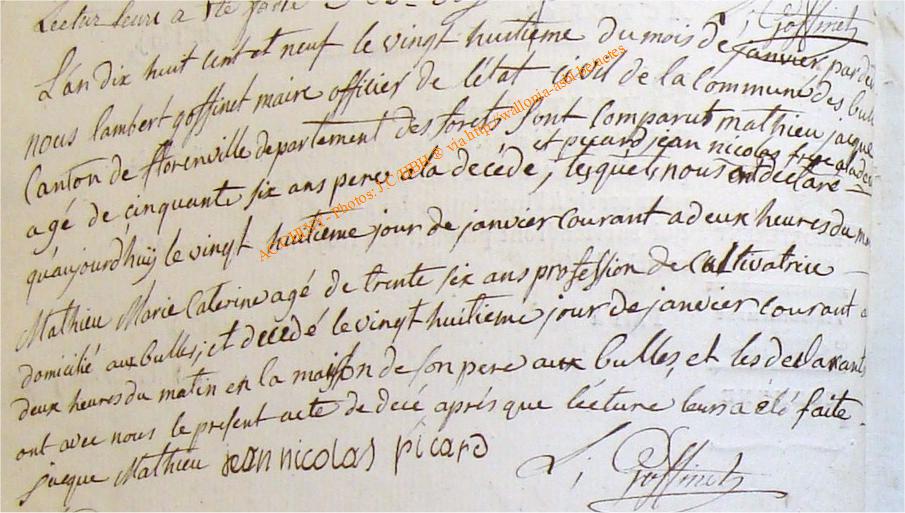 Lecture leur a été faite
L; Goffinet
L'an dix huit cent et neuf le vingt huitieme du mois de janvier par de
nous lambert goffinet maire officier de l'état civil de la Commune des bull
Canton de florenville departement des forets sont comparut mathieu jacque
et picard jean nicolas
agé de cinquante six ans pere a la décédé, lesquels nous on declaré
qu'aujourd'huÿ le vingt huitième jour de janvier courant a deux heures du
Mathieu Marie Caterine agé de trente six ans profession de Cultivatrice
domicilié aux bulles, et decedé le vingt huitieme jour de janvier courant a
deux heures du matin en la maison de son pere aux bulles, et les declarants
ont avec nous le present acte de decé après que lécture leurs a été faite.
jacque Mathieu jean nicolas picard
L; Goffinet
Photos: J C via http://wallonia-asbl.be/actes